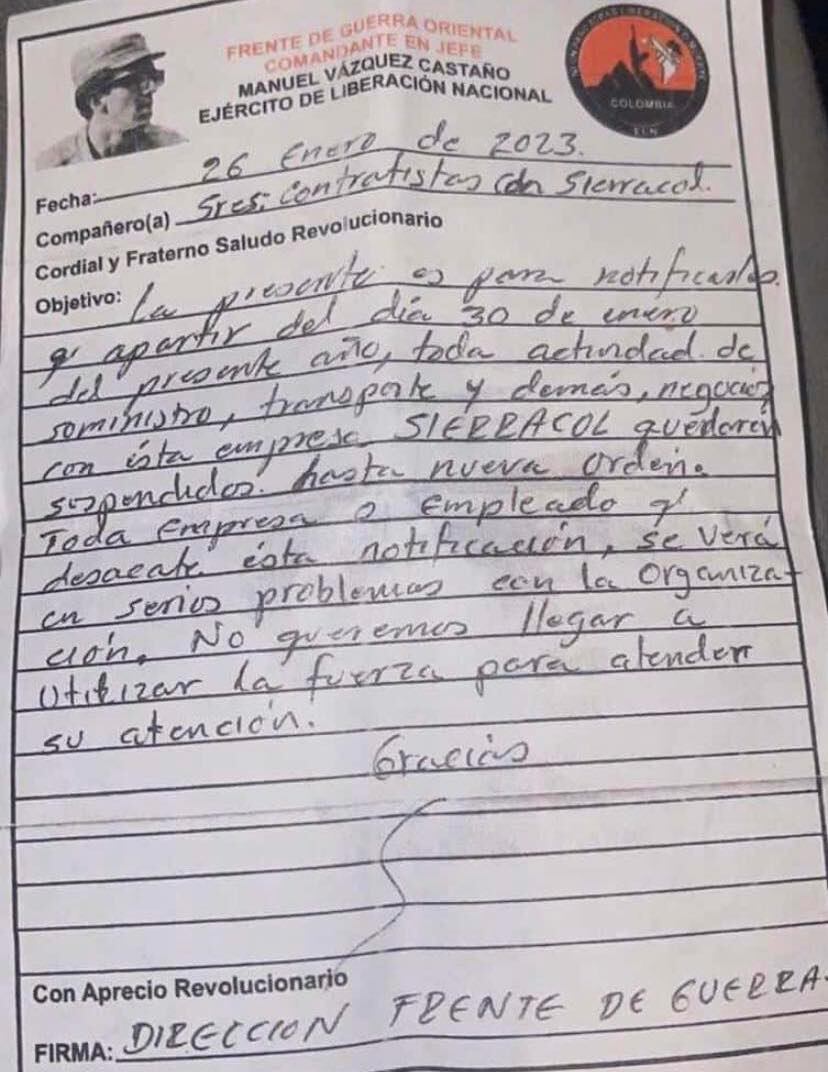 FRENTE DE GUERRA ORIENTAL
COMANDANTE EN JEFE
MANUEL VÁZQUEZ CASTAÑO
EJÉRCITO DE LIBERACIÓN NACIONAL
COLOMBIA
ELN
Fecha: 26 Enero de 2023.
Compañero(a) Sres: Contratistas con Sierracol.
Cordial y Fraterno Saludo Revolucionario
Objetivo: La presente es para notificarles
q' apartir del día 30 de enero
del presente año, toda actividad de
suministro, transporte y demás, negocios
con ésta empresa SIERRACOL quedaran
suspendidos. hasta nueva orden.
Toda empresa o empleado q'
desacate ésta notificación, se verá
en serios problemas con la Organiza-
ción. No queremos llegar a
Utilizar la fuerza para atender
su atención.
Gracias
Con Aprecio Revolucionario
FIRMA: DIRECCION FRENTE DE GUERRA.